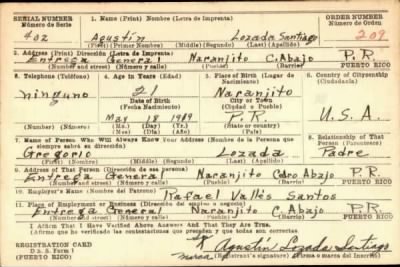 SERIAL NUMBER 1. Name (Print) Nombre (Letra de Imprenta) ORDER NUMBER
Número de Serie Número de Orden
402 Agustín Lozada Santiago 209
(First) (Primer Nombre) (Middle) (Segundo) (Last) (Apellido)
2. Address (Print) Dirección (Letra de Imprenta)
Entrega General Naranjito C. Abajo P.R.
(Number and street) (Número y calle) (Town) (Pueblo) (Barrio) PUERTO RICO
3. Telephone (Teléfono) 4. Age in Years (Edad) 5. Place of Birth (Lugar de Nacimiento) 6. Country of Citizenship (Ciudadanía)
ninguno 21 Naranjito
Date of Birth City or Town
(Fecha Nacimiento) (Ciudad o Pueblo)
Mar 18 1919 P.R. U.S.A.
(Number) (Número) (Mo.) (Day) (Yr.) State or country
7. Name of Person Who Will Always Know Your Address (Nombre de la Persona que siempre sabrá su dirección) 8. Relationship of That Person (Parentesco)
Gregorio Lozada Padre
(First) (Nombre) (Middle) (Segundo) (Last) (Apellido)
9. Address of That Person (Dirección de esa persona)
Entrega General Naranjito Cedro Abajo P.R.
(Number and street) (Número y calle) (Town) (Pueblo) (Barrio) PUERTO RICO
10. Employer's Name (Nombre del Patrono)
Rafael Vallés Santos
11. Place of Employment or Business (Dirección del empleo o negocio)
Entrega General Naranjito C. Abajo P.R.
(Number and street) (Número y calle) (Town) (Pueblo) (Barrio) PUERTO RICO
I Affirm That I Have Verified Above Answers And That They Are True.
(Afirmo que he verificado las contestaciones que preceden y que todas son ciertas)
REGISTRATION CARD Agustín Lozada Santiago
D. S. S. Form 1 (Registrant's signature) (Firma o marca del Inscrito)
(PUERTO RICO)